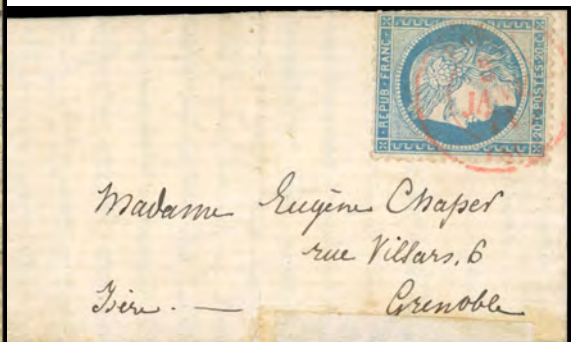 REPUB·FRANC·
20·C·POSTES·20·C
JA
Madame Eugène Chaper
rue Villars, 6
Isère. — Grenoble